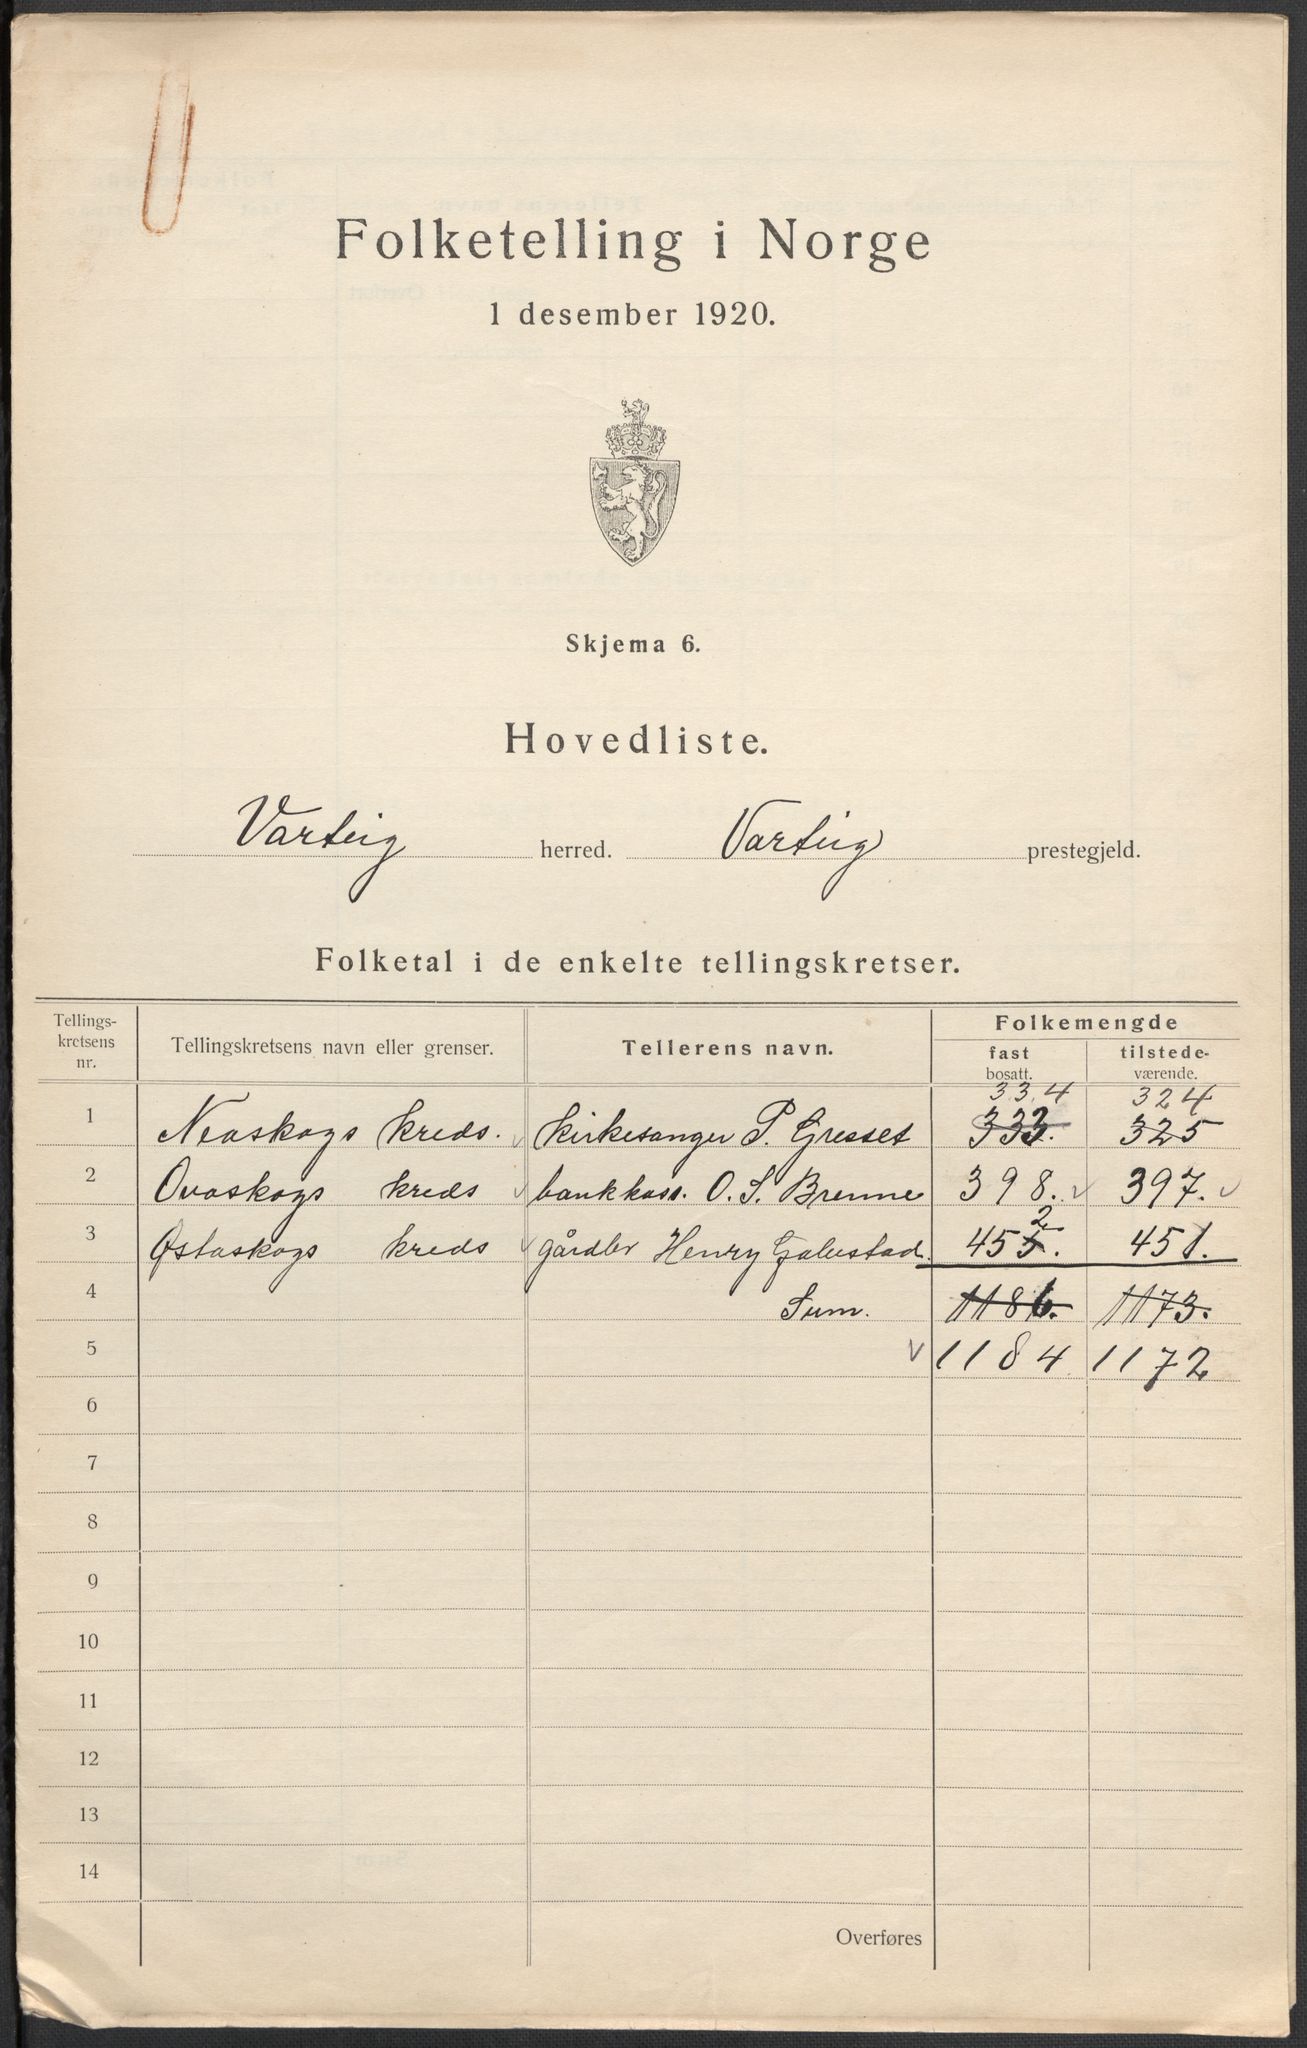 Folketelling i Norge
1 desember 1920.
Skjema 6.
Hovedliste.
Varteig herred. Varteig prestegjeld.
Folketal i de enkelte tellingskretser.
Tellings-kretsens nr. Tellingskretsens navn eller grenser. Tellerens navn. Folkemengde
fast bosatt. tilstede-værende.
334 324
1 Neaskogs kreds. kirkesanger P. Gresset 333. 325
2 Ovaskogs kreds bankkass. O. S. Brenne 398. 397.
2
3 Østaskogs kreds gårdbr Henry 455. 451.
4 Sum. 1186. 1173.
5 1184 1172
6
7
8
9
10
11
12
13
14
Overføres